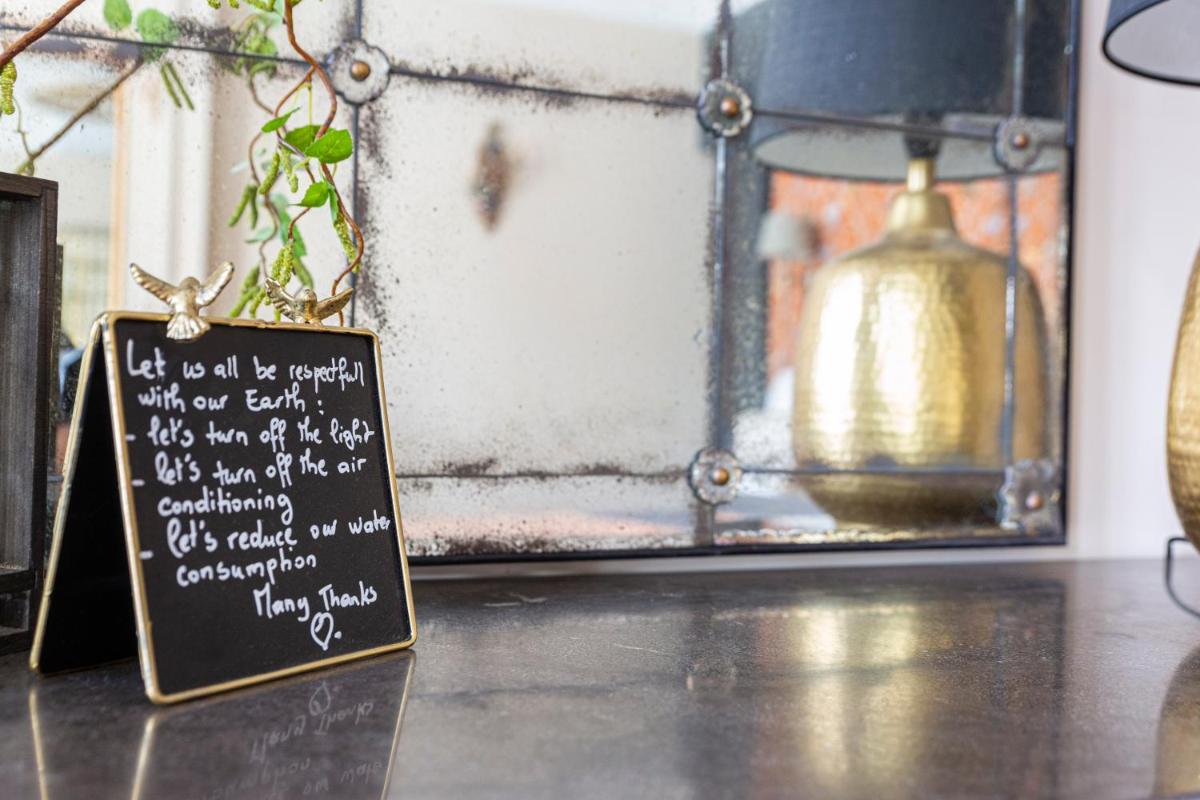 Let us all be respectfull
with our Earth :
- let's turn off the light
- let's turn off the air
conditioning
- let's reduce our water
consumption
Many Thanks
♡.